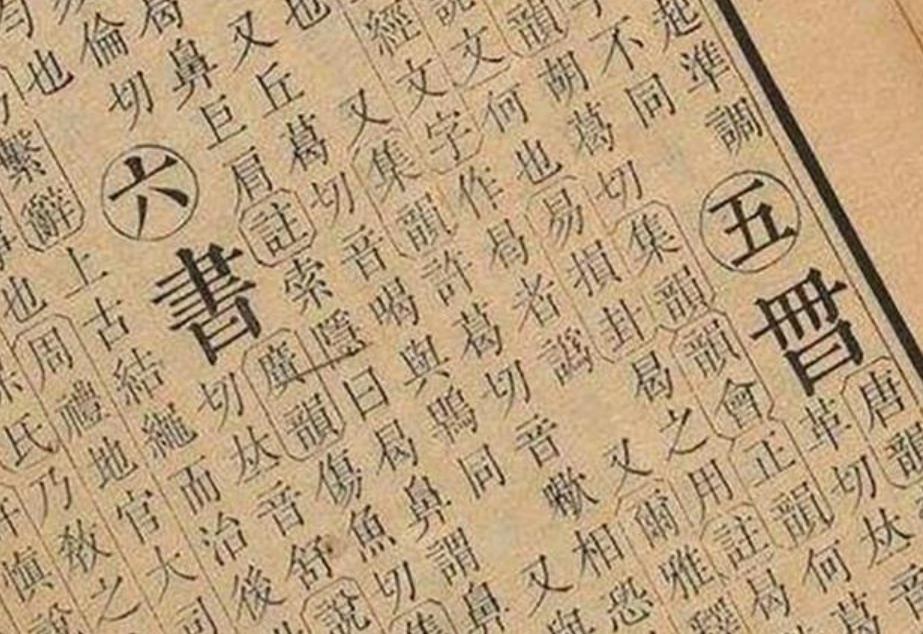 起準調
五
曶
唐韻
不同
革切𠀤音
胡葛切集韻韻會正韻何葛
韻
說文何也易損卦曷之用註曷
經文字作曷者譌
又爾雅釋
也
又集韻許葛切音嗽相恐
又丘葛切音喝與鶡同
又與
曷鼻巨肩註索隱曰曷鼻謂鼻
倫切
六
書
廣韻傷魚切集
切𠀤音舒說
也
上古結繩而治後
繫辭
也周禮地官大司
氏乃敎之
慎說